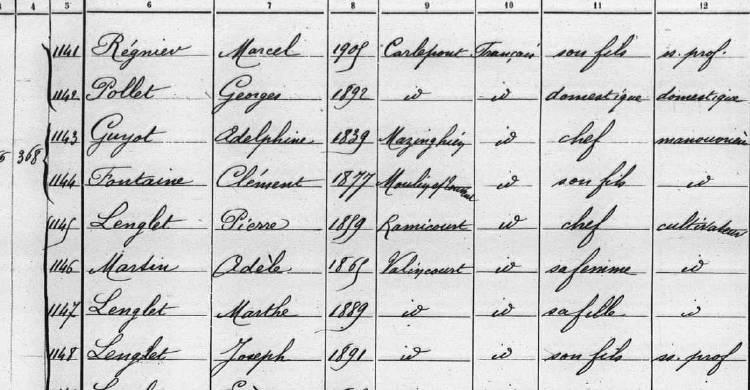 3 4 5 6 7 8 9 10 11 12
1141 Régnier Marcel 1905 Carlepont Français son fils s. prof.
1142 Pollet Georges 1892 id id domestique domestique
368 1143 Guyot Adelphine 1839 Mazinghien id chef manouvrière
1144 Fontaine Clément 1877 id son fils id
1145 Lenglet Pierre 1859 Ramicourt id chef cultivateur
1146 Martin Adèle 1865 Valincourt id sa femme id
1147 Lenglet Marthe 1889 id id sa fille id
1148 Lenglet Joseph 1891 id id son fils s. prof